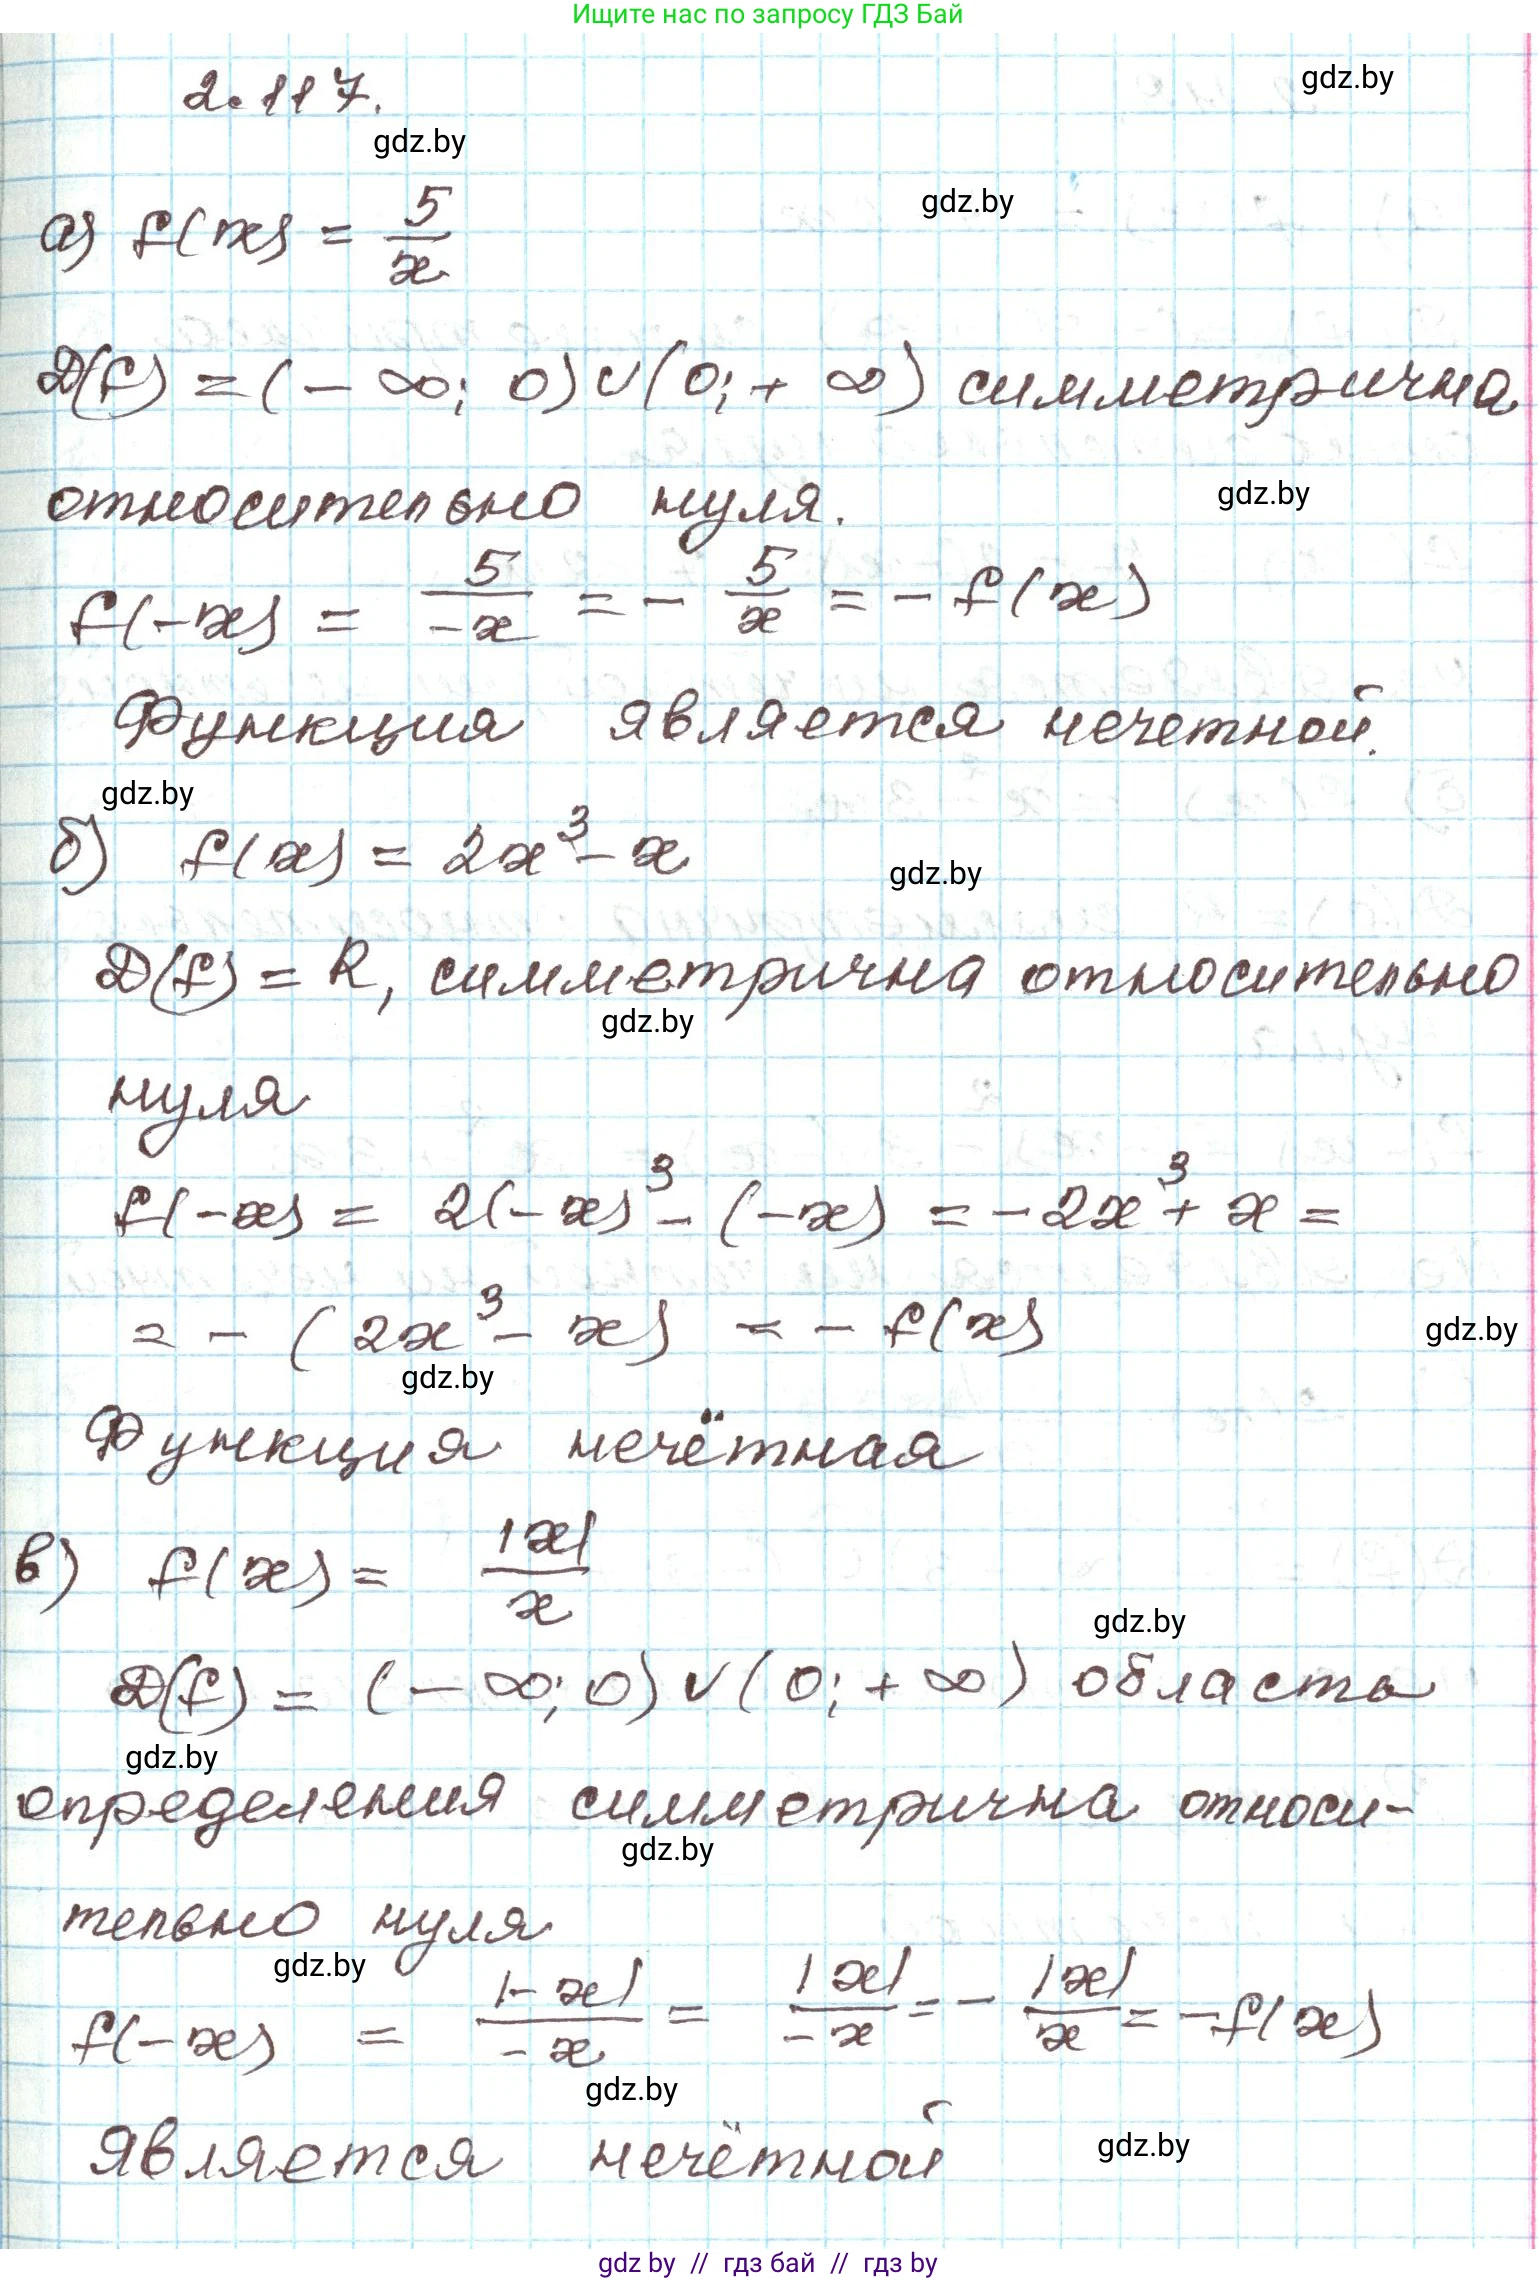 Ищите нас по запросу ГДЗ Бай
gdz.by
2.117.
gdz.by
gdz.by
а) f(x) = 5/x
D(f) = (- ∞; 0) ∪ (0; + ∞) симметрична
относительно нуля.
gdz.by
f(-x) = 5/-x = - 5/x = - f(x)
Функция является нечетной.
gdz.by
б) f(x) = 2x³ - x
gdz.by
D(f) = R, симметрична относительно
gdz.by
нуля
f(-x) = 2(-x)³ - (-x) = -2x³ + x =
= - (2x³ - x) = - f(x)
gdz.by
gdz.by
Функция нечётная
в) f(x) = |x|/x
gdz.by
D(f) = (- ∞; 0) ∪ (0; + ∞) область
gdz.by
определения симметрична относи-
gdz.by
тельно нуля
gdz.by
f(-x) = |-x|/-x = |x|/-x = - |x|/x = -f(x)
gdz.by
является нечётной
gdz.by
gdz by // гдз бай // гдз by